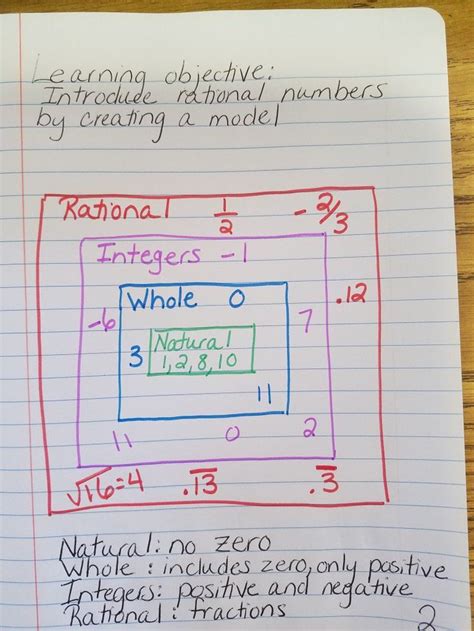 Learning objective:
Introdude rational numbers
by creating a model
Rational 1/2 -2/3
Integers -1
Whole 0 .12
-6 7
3 Natural
1, 2, 8, 10
11
11 0 2
√16=4 .1̅3̅ .3̅
Natural: no zero
Whole : includes zero, only positive
Integers: positive and negative
Rational : fractions
2